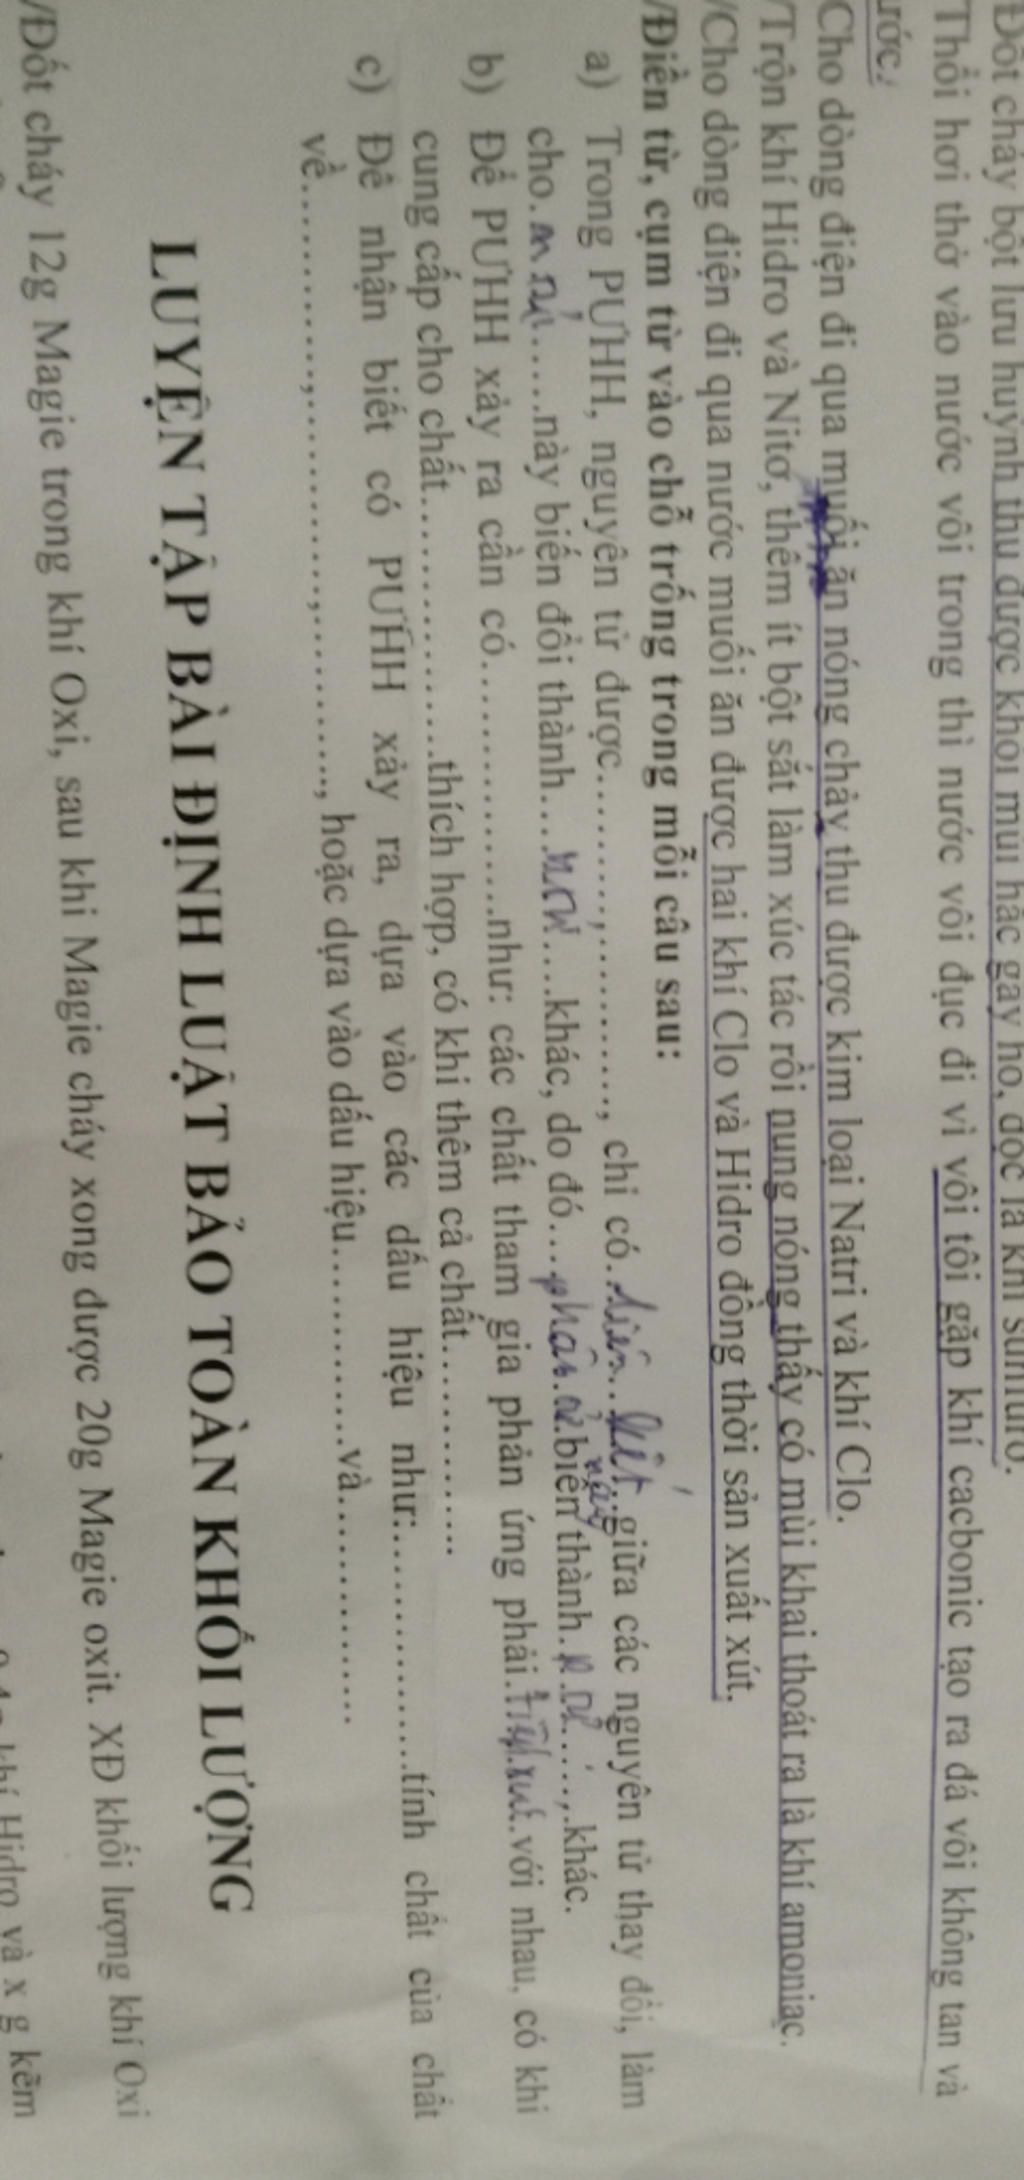 Đốt cháy bột lưu huỳnh thu được khói mùi hắc gây ho, độc là khí sunfurơ.
Thổi hơi thở vào nước vôi trong thì nước vôi đục đi vì vôi tôi gặp khí cacbonic tạo ra đá vôi không tan và
ước.
Cho dòng điện đi qua muối ăn nóng chảy thu được kim loại Natri và khí Clo.
/Trộn khí Hidro và Nitơ, thêm ít bột sắt làm xúc tác rồi nung nóng thấy có mùi khai thoát ra là khí amoniac.
/Cho dòng điện đi qua nước muối ăn được hai khí Clo và Hidro đồng thời sản xuất xút.
/Điền từ, cụm từ vào chỗ trống trong mỗi câu sau:
a) Trong PƯHH, nguyên tử được............,............, chỉ có..liên..kết..giữa các nguyên tử thay đổi, làm
cho.......này biến đổi thành........khác, do đó...phân.tử.biến thành........khác.
này
b) Để PƯHH xảy ra cần có....................như: các chất tham gia phản ứng phải.tiếp.xúc..với nhau, có khi
cung cấp cho chất....................thích hợp, có khi thêm cả chất...............
c) Để nhận biết có PƯHH xảy ra, dựa vào các dấu hiệu như:...................tính chất của chất
về..............,..............,..........., hoặc dựa vào dấu hiệu..............và...............
LUYỆN TẬP BÀI ĐỊNH LUẬT BẢO TOÀN KHỐI LƯỢNG
/Đốt cháy 12g Magie trong khí Oxi, sau khi Magie cháy xong được 20g Magie oxit. XĐ khối lượng khí Oxi
khí Hidro và x g kẽm